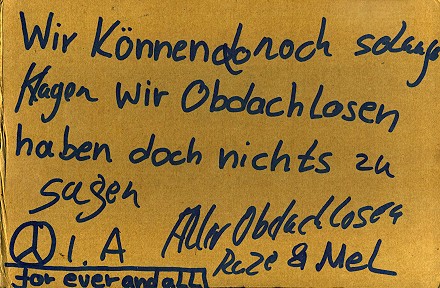 Wir Können noch solange
klagen wir Obdachlosen
haben doch nichts zu
sagen
I. A
Aller Obdachlosen
Raze & Mel
for ever and all